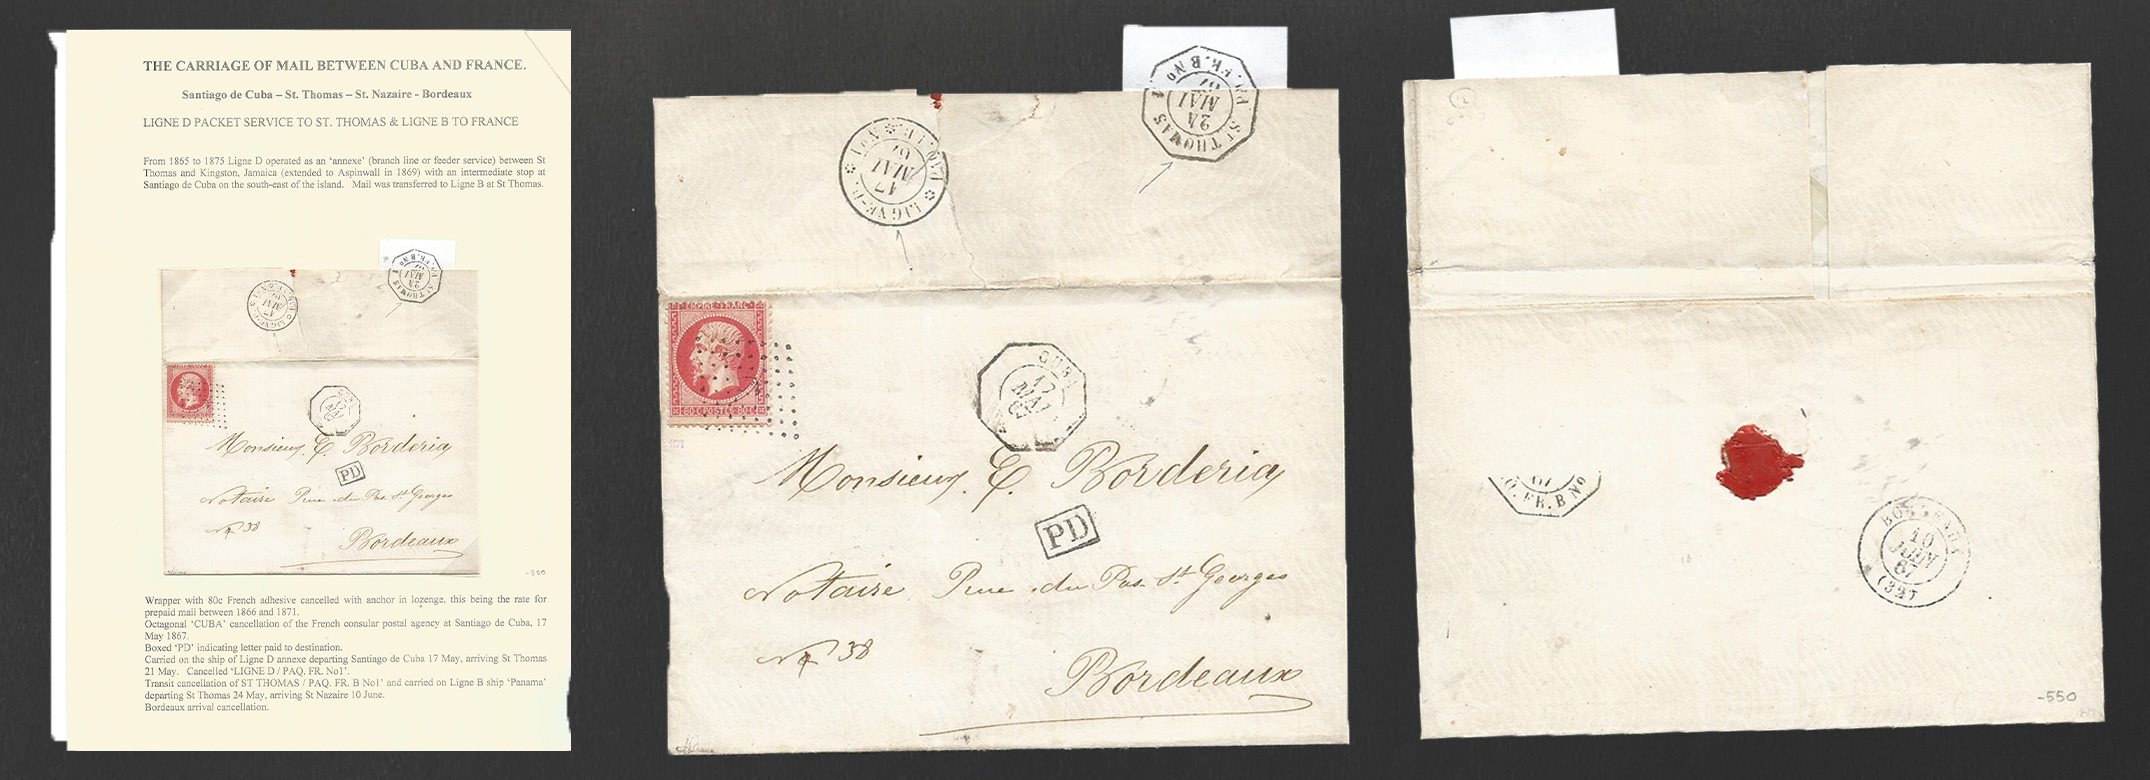 THE CARRIAGE OF MAIL BETWEEN CUBA AND FRANCE.
Santiago de Cuba – St. Thomas – St. Nazaire - Bordeaux
LIGNE D PACKET SERVICE TO ST. THOMAS & LIGNE B TO FRANCE
From 1865 to 1875 Ligne D operated as an 'annexe' (branch line or feeder service) between St
Thomas and Kingston, Jamaica (extended to Aspinwall in 1869) with an intermediate stop at
Santiago de Cuba on the south-east of the island. Mail was transferred to Ligne B at St Thomas.
ST THOMAS
24
MAI
67
LIGNE-D.
17
MAI
67
CUBA
17
MAI
67
Monsieur E. Borderia
PD
Notaire Rue du Pas St Georges
N 38
Bordeaux
-550
Wrapper with 80c French adhesive cancelled with anchor in lozenge, this being the rate for
prepaid mail between 1866 and 1871.
Octagonal 'CUBA' cancellation of the French consular postal agency at Santiago de Cuba, 17
May 1867.
Boxed 'PD' indicating letter paid to destination.
Carried on the ship of Ligne D annexe departing Santiago de Cuba 17 May, arriving St Thomas
21 May. Cancelled 'LIGNE D / PAQ. FR. No1'.
Transit cancellation of ST THOMAS / PAQ. FR. B No1' and carried on Ligne B ship 'Panama'
departing St Thomas 24 May, arriving St Nazaire 10 June.
Bordeaux arrival cancellation.
ST THOMAS PAQ. FR. B No 1
24
MAI
67
LIGNE-D. PAQ. FR. No 1
17
MAI
67
EMPIRE FRANC
80 C POSTES 80 C
CUBA
17
MAI
67
Monsieur E. Borderia
PD
Notaire Rue du Pas St Georges
N 38
Bordeaux
67
Q. FR. B No
BORDEAUX
10
JUIN
67
(32)
-550